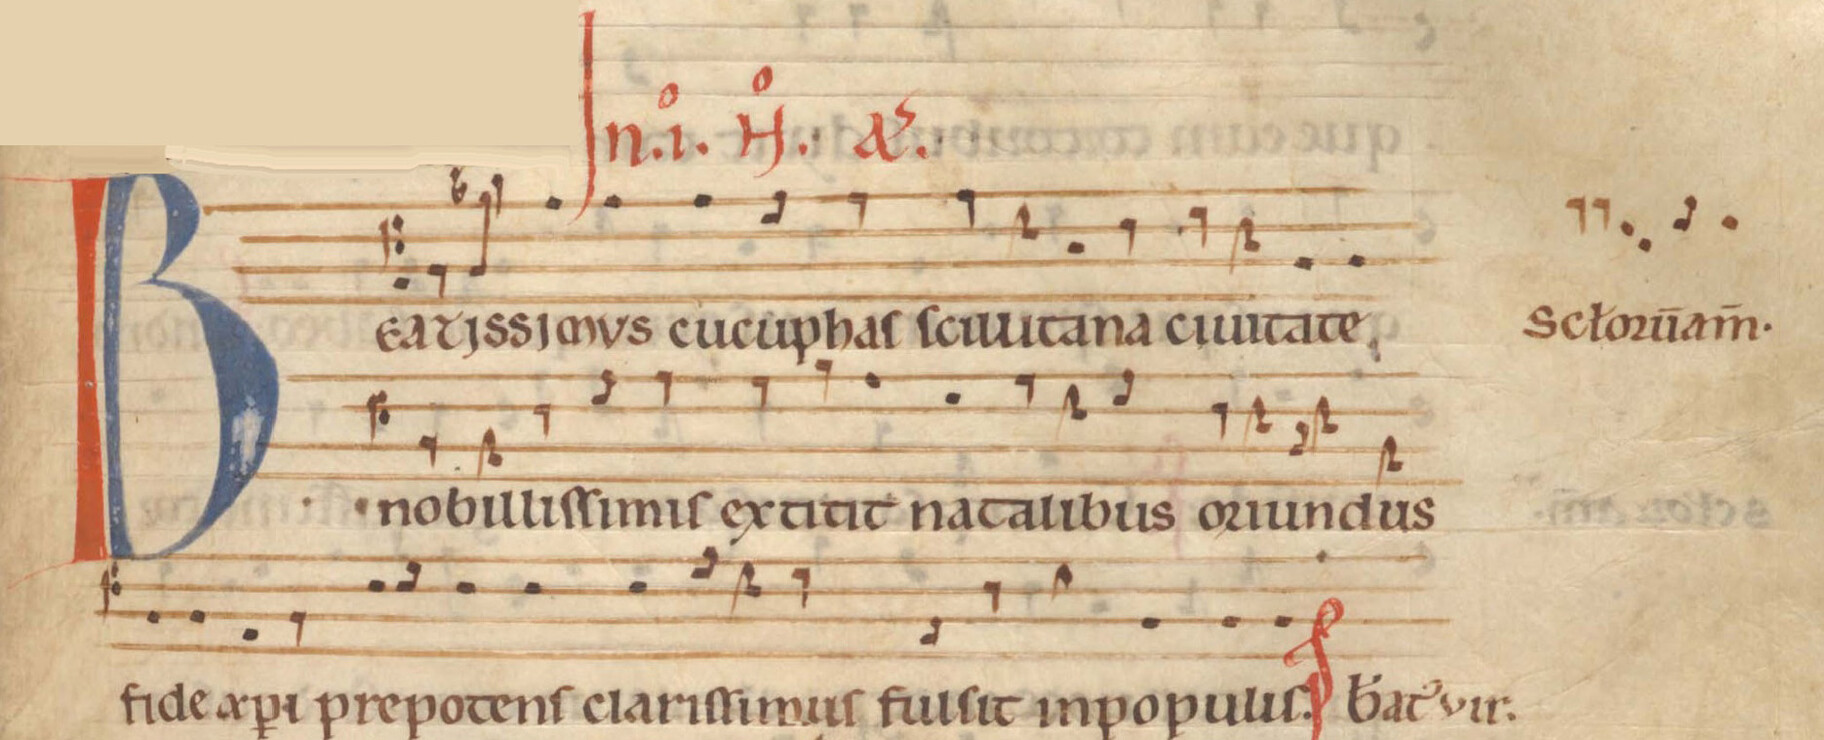 In .i.º Nº. añ.
BEATISSIMVS cucuphas scillitana ciuitate
Sctoru̅ am̅.
nobillissimis extitit natalibus oriundus
fide xp̅i prepotens clarissimus fulsit in populis. P b̅at᾽ vir.